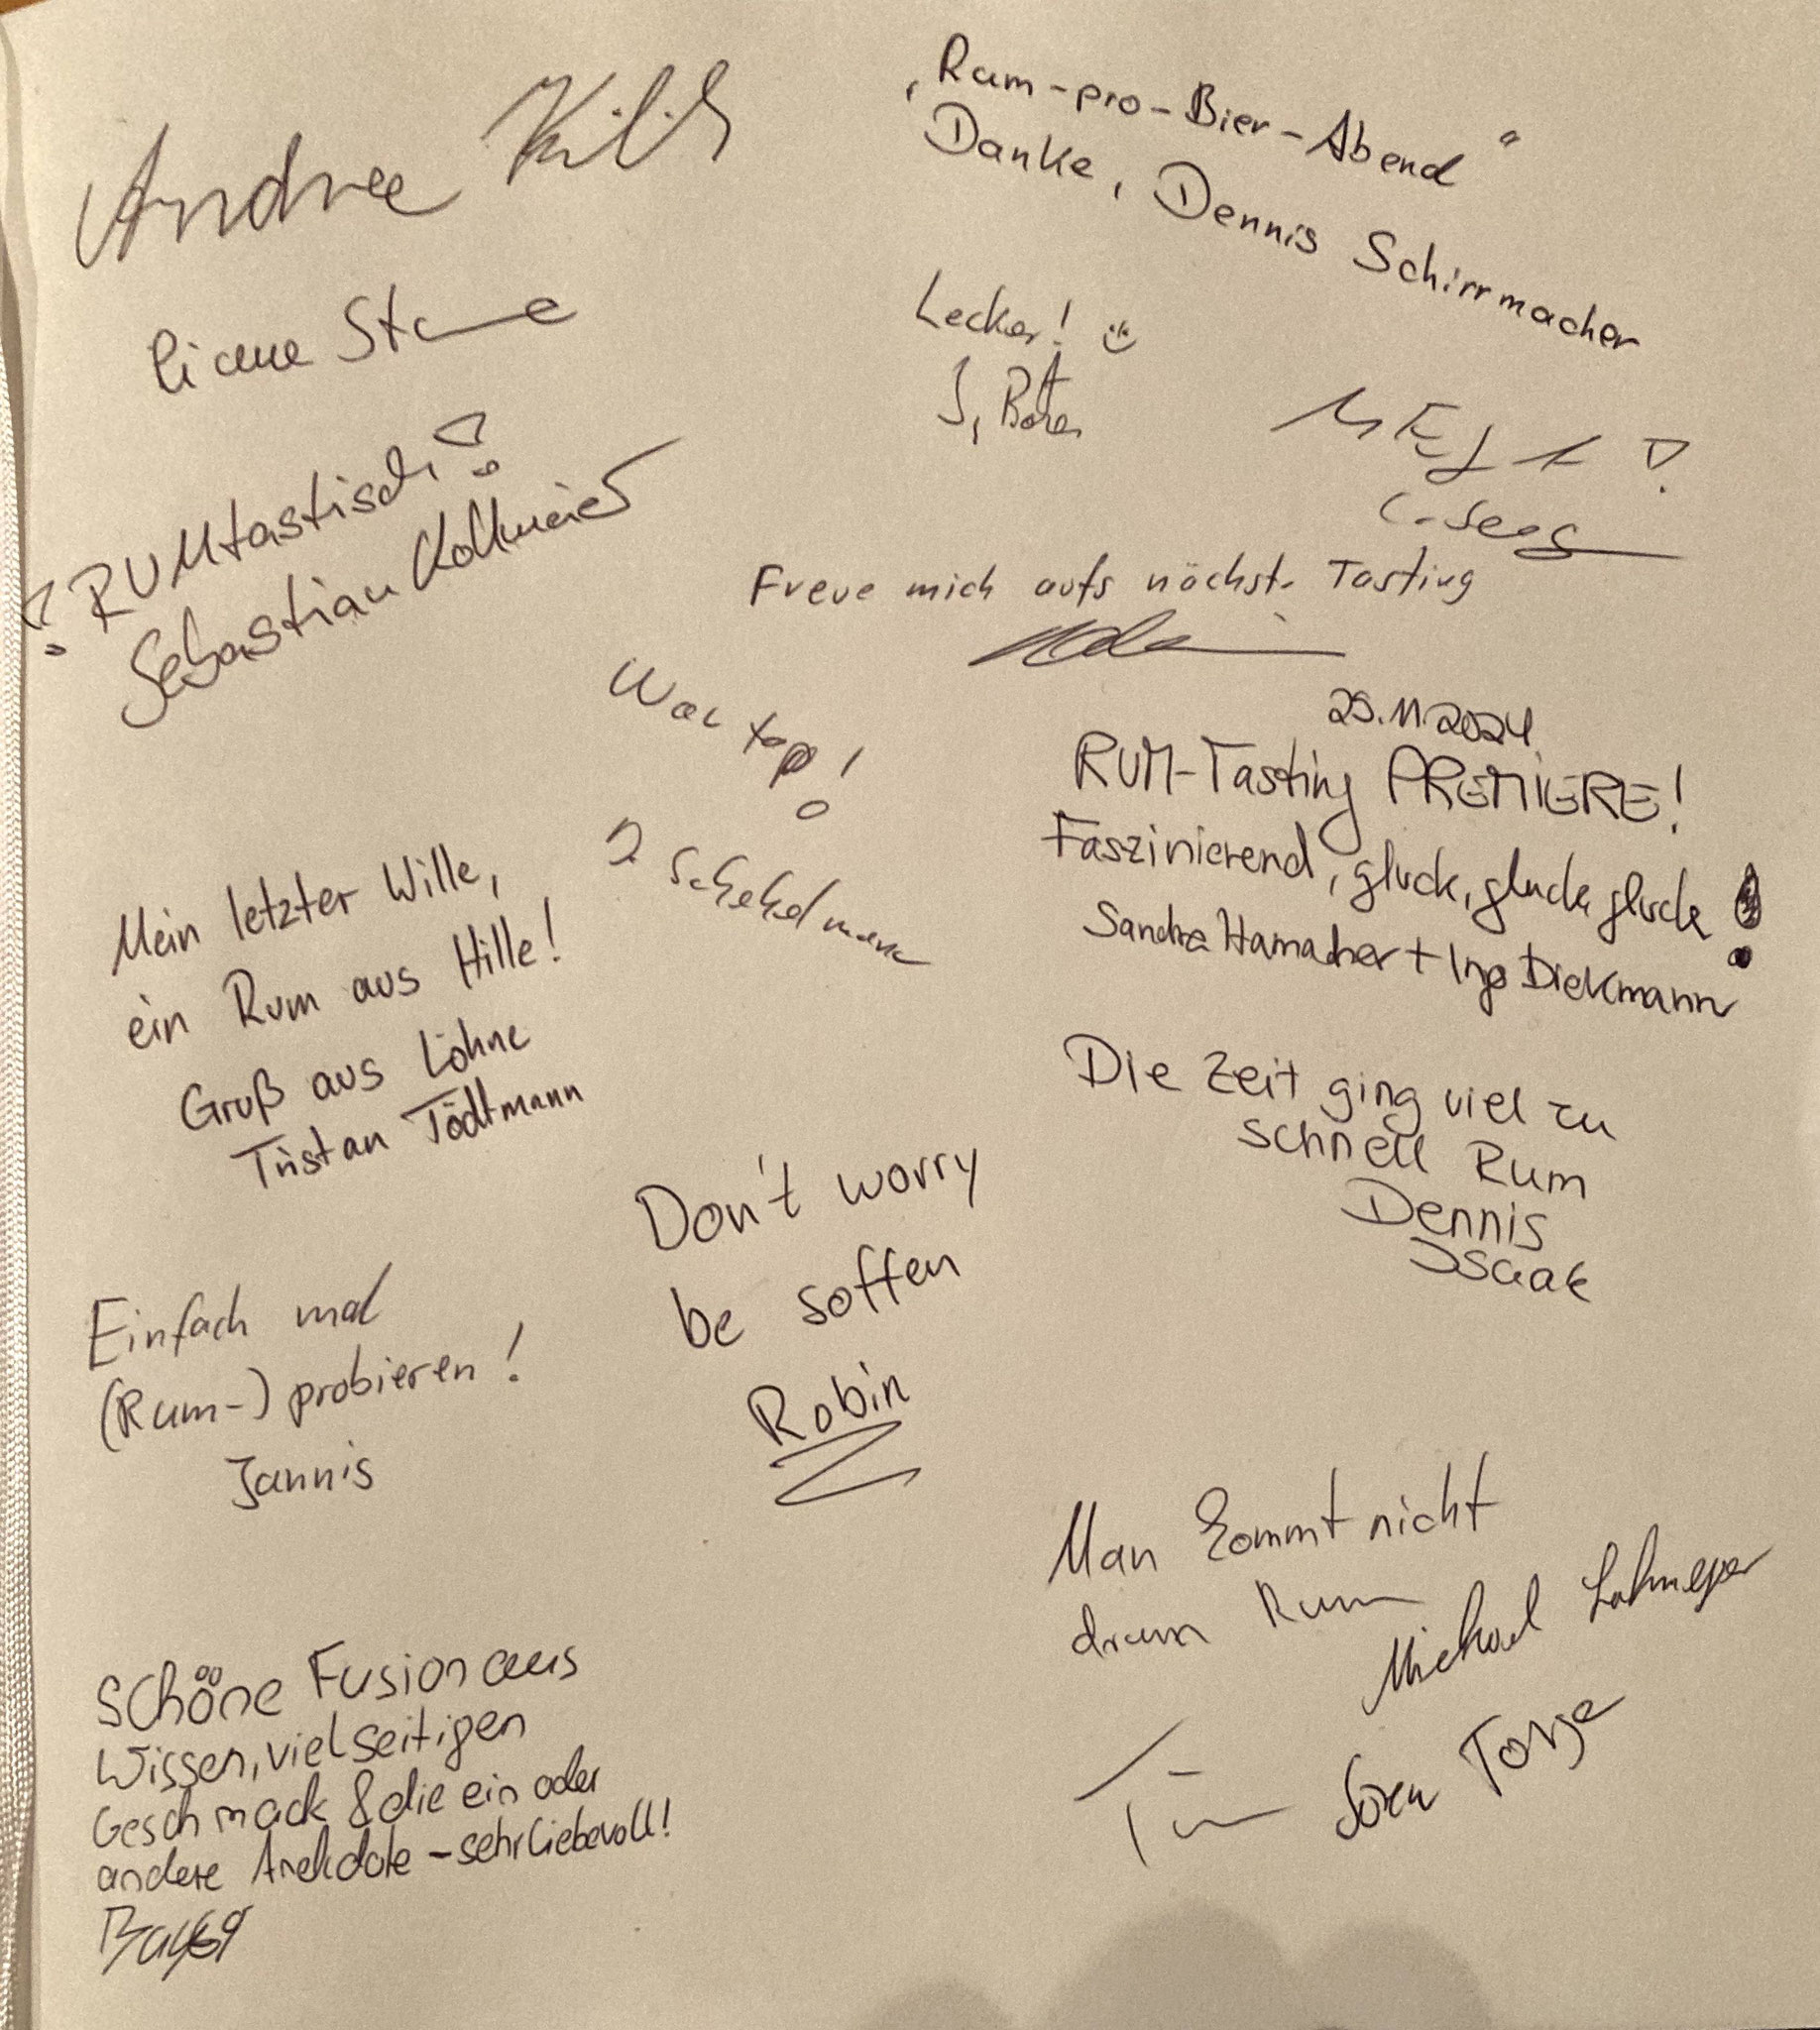 Andree
"Rum-pro-Bier-Abend"
Danke, Dennis Schirrmacher
Lecker! ☺
RUMtastisch!
Sebastian Kollmeier
MEGA!
Freue mich aufs nächste Tasting
War top!
29.11.2024
RUM-Tasting PREMIERE!
Faszinierend, gluck, gluck, gluck!
Sandra Hamacher + Ingo Diekmann
Mein letzter Wille,
ein Rum aus Hille!
Gruß aus Löhne
Tristan Tödtmann
Die Zeit ging viel zu
schnell Rum
Dennis
Isaak
Don't worry
be soffen
Robin
Einfach mal
(Rum-) probieren!
Jannis
Man kommt nicht
drum Rum
Michael Lohmeyer
Sören
Schöne Fusion aus
Wissen, vielseitigen
Geschmack & die ein oder
andere Anekdote - sehr liebevoll!